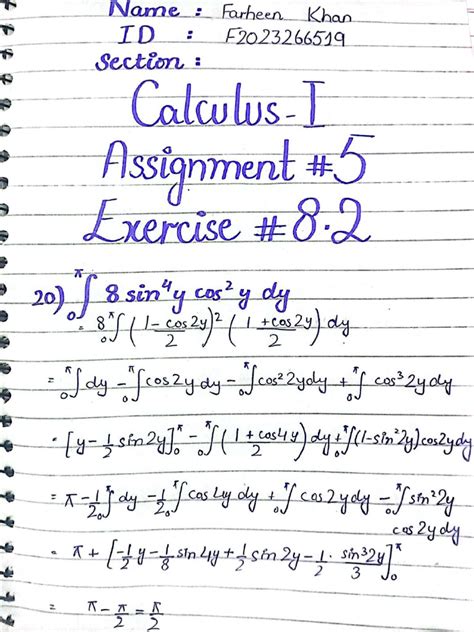 Name : Farheen Khan
ID : F2023266519
Section :
Calculus-I
Assignment #5
Exercise #8.2
20) ₀∫^π 8 sin⁴y cos²y dy
= 8 ₀∫^π (1-cos2y/2)² (1+cos2y/2) dy
= ₀∫^π dy - ₀∫^π cos2y dy - ₀∫^π cos²2y dy + ₀∫^π cos³2y dy
= [y - 1/2 sin2y]₀^π - ₀∫^π (1+cos4y/2) dy + ₀∫^π (1-sin²2y) cos2y dy
= π - 1/2 ₀∫^π dy - 1/2 ₀∫^π cos4y dy + ₀∫^π cos2y dy - ₀∫^π sin²2y
cos2y dy
= π + [-1/2 y - 1/8 sin4y + 1/2 sin2y - 1/2 · sin³2y/3]₀^π
= π - π/2 = π/2